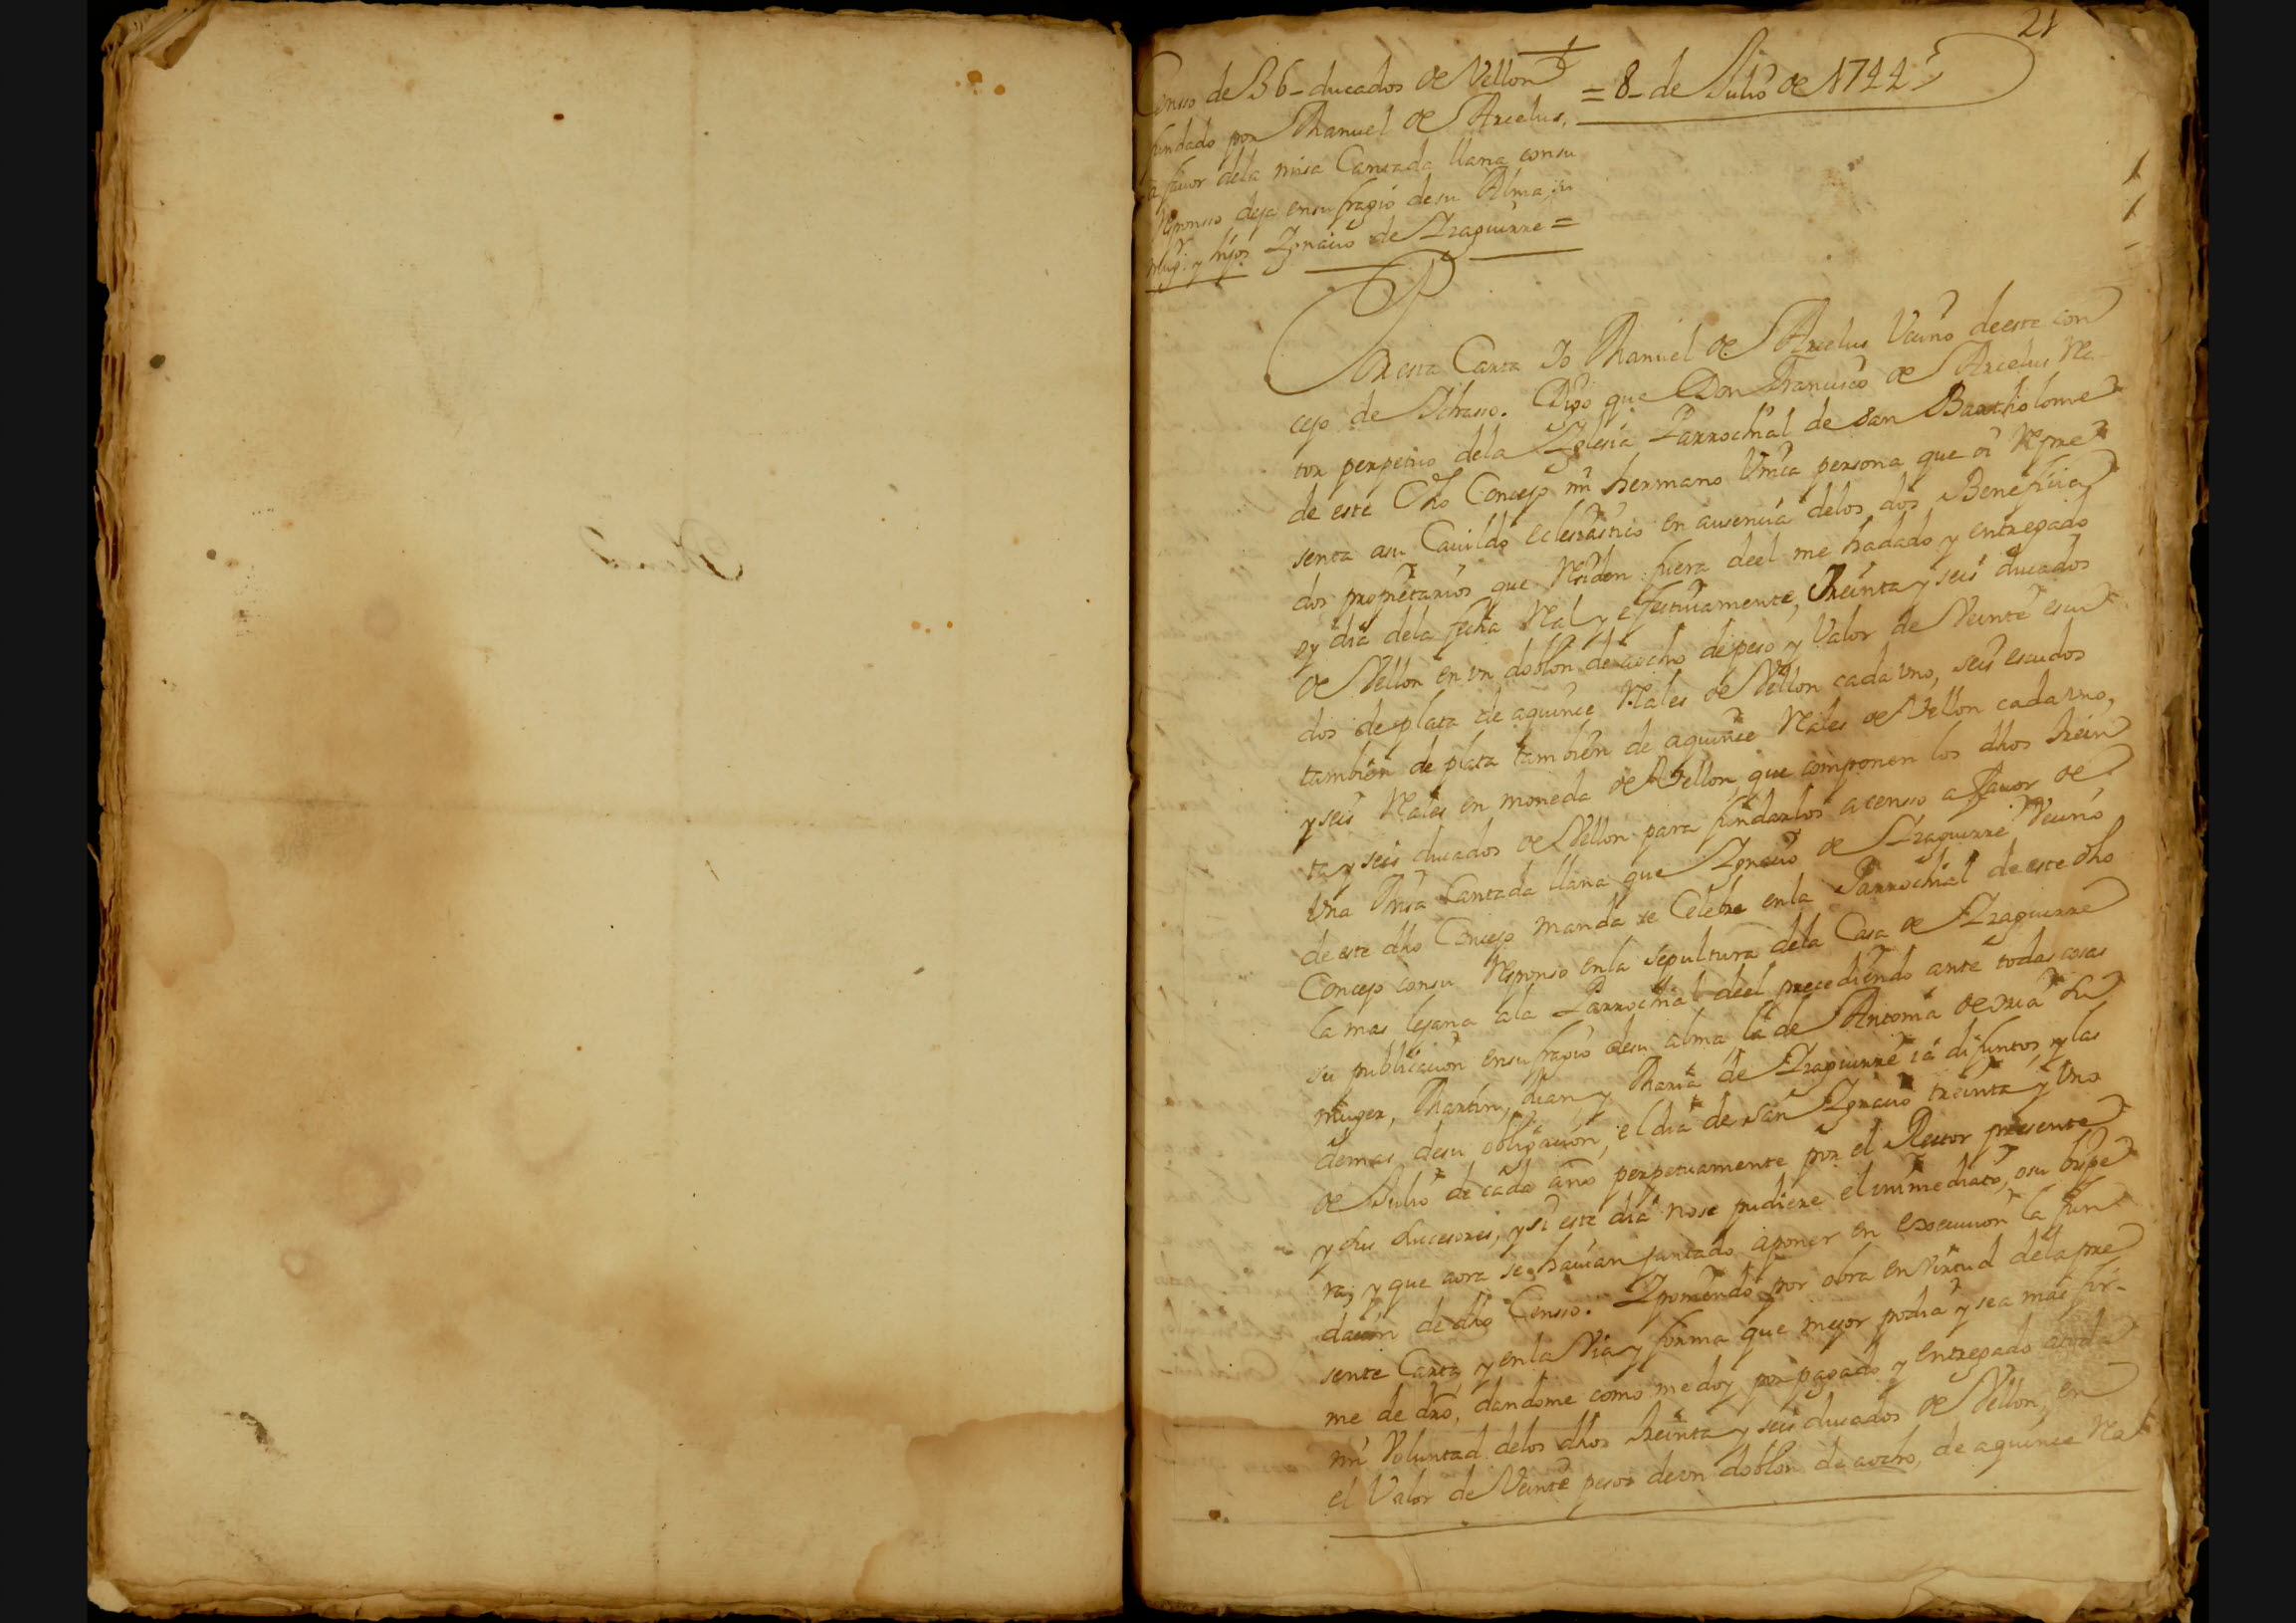 21
Censso de 36_ducados de Vellon
fundado por Manuel de Arcelus,
a fauor dela misa Cantada llana consu
Responsso deja ensufragio desu Alma, su
mug.r y hijos Ignacio de Izaguirre =
= 8_ de Julio de 1744
Por esta Carta Io Manuel de Arcelus Vecino deeste con
cejo de Ichasso. Digo que Don Francisco de Arcelus Re
tor perpetuo dela Iglesia Parrochial de san Bartholome
de este dho Concejo mi hermano Vnica persona que oi Repre
senta asu Cauildo eclesiastico en ausencia delos dos Beneficia
dos propietarios que Residen fuera deel me hadado y entregado
oy dia dela fecha Real y efectiuamente, Treinta y seis ducados
de Vellon en vn doblon de aocho depeso y Valor de Veinte escu
dos de plata de aquince Reales de Vellon cada vno, seis escudos
tambien de plata tambien de aquince Reales de Vellon cada vno,
y seis Reales en moneda de Vellon, que componen los dhos trein
ta y seis ducados de Vellon para fundarlos acenso a fauor de
Vna Misa Cantada llana que Ignacio de Izaguirre Vecino
de este dho Concejo manda se Celebre enla Parrochial de este dho
Concejo consu Responso enla sepultura dela Casa de Izaguirre
la mas lejana ala Parrochial deel precediendo ante todas cosas
su publicacion ensufragio desu alma la de Antonia de su
muger, Martin, Juan y Maria de Izaguirre ia difuntos y las
demas desu obligacion, el dia de san Ignacio treinta y Vno
de Julio de cada año perpetuamente por el Rector presente
y sus subcesores, y si este dia nose pudiere el immediato, osu bispe
ra; y que aora se hauian juntado aponer en execucion la fun
dacion de dho Censso. Iponiendo por obra en Virtud dela pre
sente Carta, y enla Via y forma que mejor podia y sea mas fir_
me de dro, dandome como medoy por pagado y entregado atoda
mi Voluntad delos dhos treinta y seis ducados de Vellon, en
el Valor de Veinte pesos deun doblon de aocho, de aquince Rea